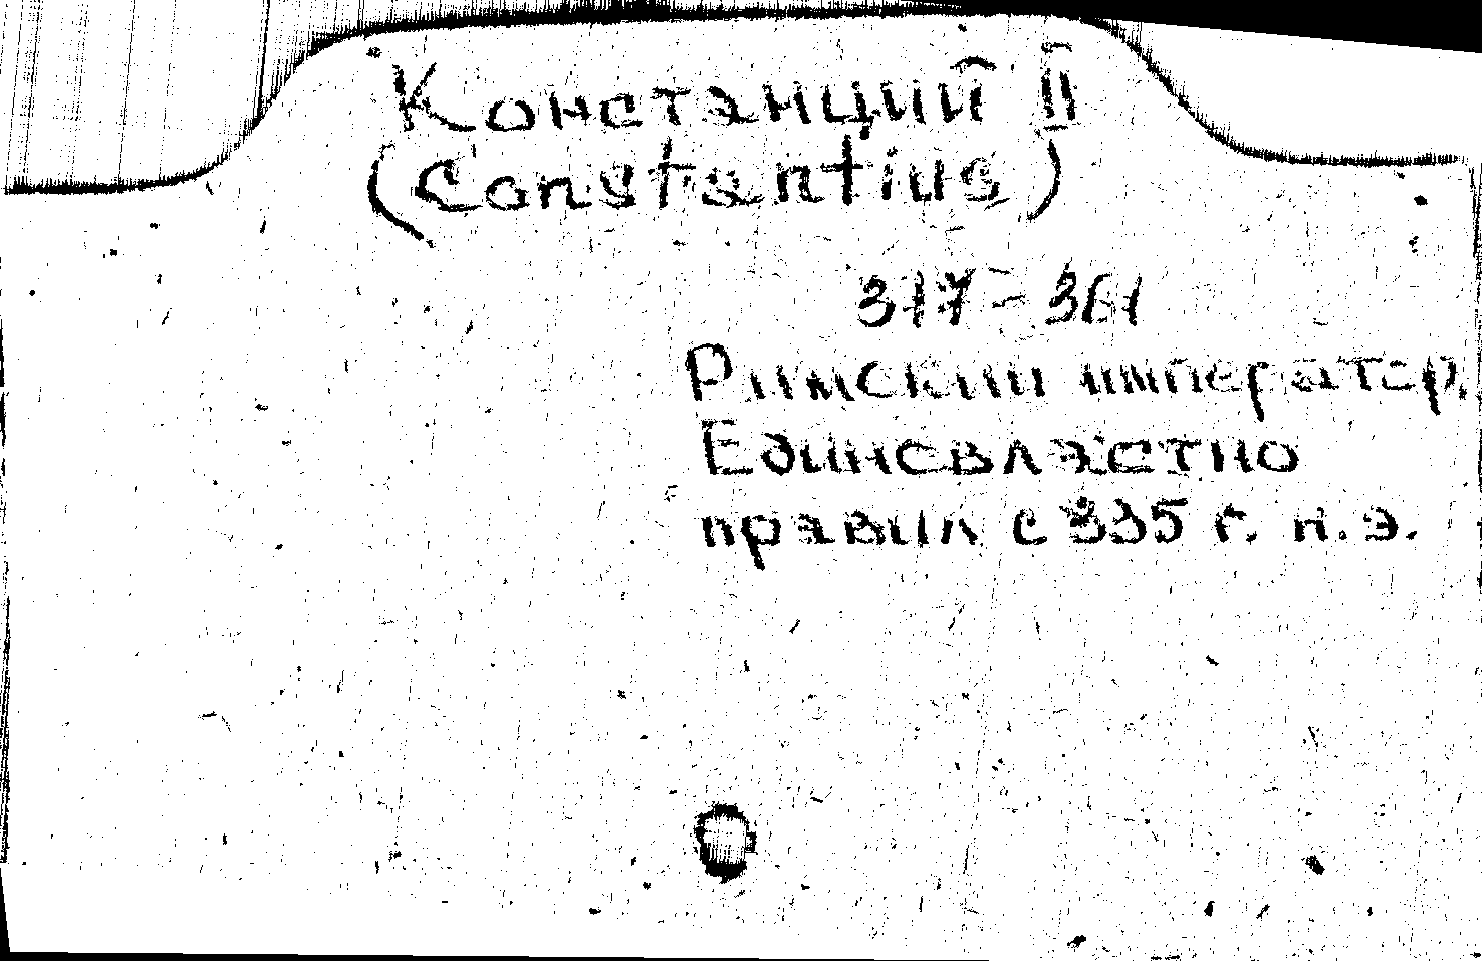 Констанций II
(Constantius)
317 - 361
Римский император.
Единовластно
правил с 335 г. н.э.